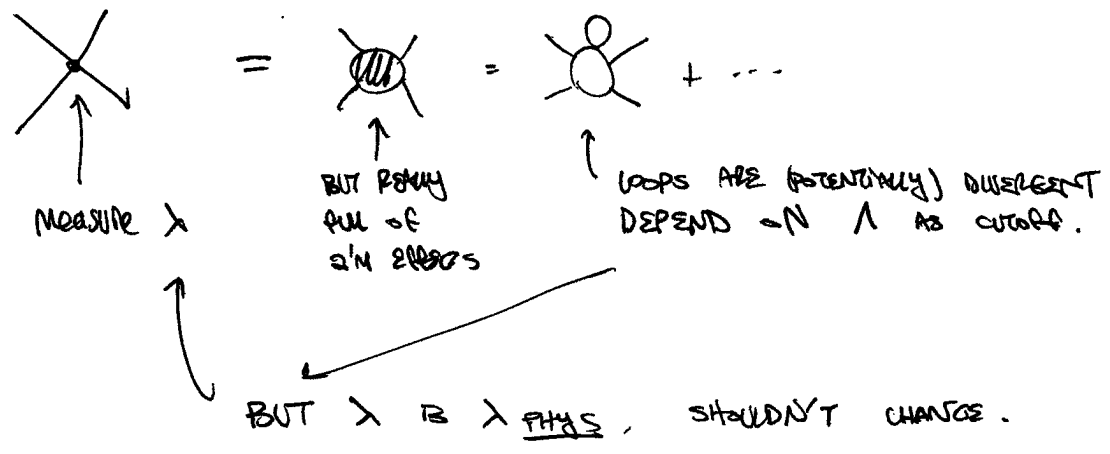 = = + ....
BUT REALLY
FULL OF
Q'M EFFECTS
MEASURE λ
LOOPS ARE (POTENTIALLY) DIVERGENT
DEPEND ON Λ AS CUTOFF.
BUT λ IS λ PHYS, SHOULDN'T CHANGE.